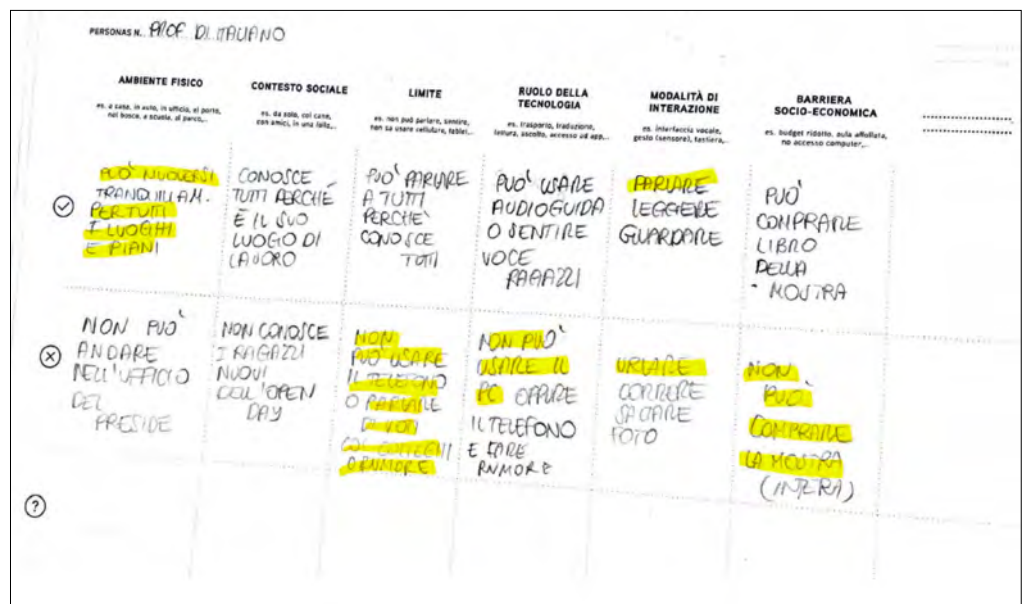 PERSONAS N. PROF. DI ITALIANO
AMBIENTE FISICO
es. a casa, in auto, in ufficio, al porto,
nel bosco, a scuola, al parco,...
CONTESTO SOCIALE
es. da solo, col cane,
con amici, in una folla,...
LIMITE
es. non può parlare, sentire,
non sa usare cellulare, tablet,...
RUOLO DELLA
TECNOLOGIA
es. trasporto, traduzione,
lettura, ascolto, accesso ad app,...
MODALITÀ DI
INTERAZIONE
es. interfaccia vocale,
gesto (sensore), tastiera,...
BARRIERA
SOCIO-ECONOMICA
es. budget ridotto, aula affollata,
no accesso computer,...
PUO' MUOVERSI
TRANQUILLAM.
PER TUTTI
I LUOGHI
E PIANI
CONOSCE
TUTTI PERCHÉ
È IL SUO
LUOGO DI
LAVORO
PUO' PARLARE
A TUTTI
PERCHE'
CONOSCE
TUTTI
PUO' USARE
AUDIOGUIDA
O SENTIRE
VOCE
RAGAZZI
PARLARE
LEGGERE
GUARDARE
PUO'
COMPRARE
LIBRO
DELLA
MOSTRA
NON PUO'
ANDARE
NELL'UFFICIO
DEL
PRESIDE
NON CONOSCE
I RAGAZZI
NUOVI
DELL'OPEN
DAY
NON
PUO' USARE
IL TELEFONO
O PARLARE
DI VOTI
COI COLLEGHI
O RUMORE
NON PUO'
USARE IL
PC OPPURE
IL TELEFONO
E FARE
RUMORE
URLARE
CORRERE
SALTARE
FOTO
NON
PUO'
COMPRARE
LA MOSTRA
(INTERA)
?